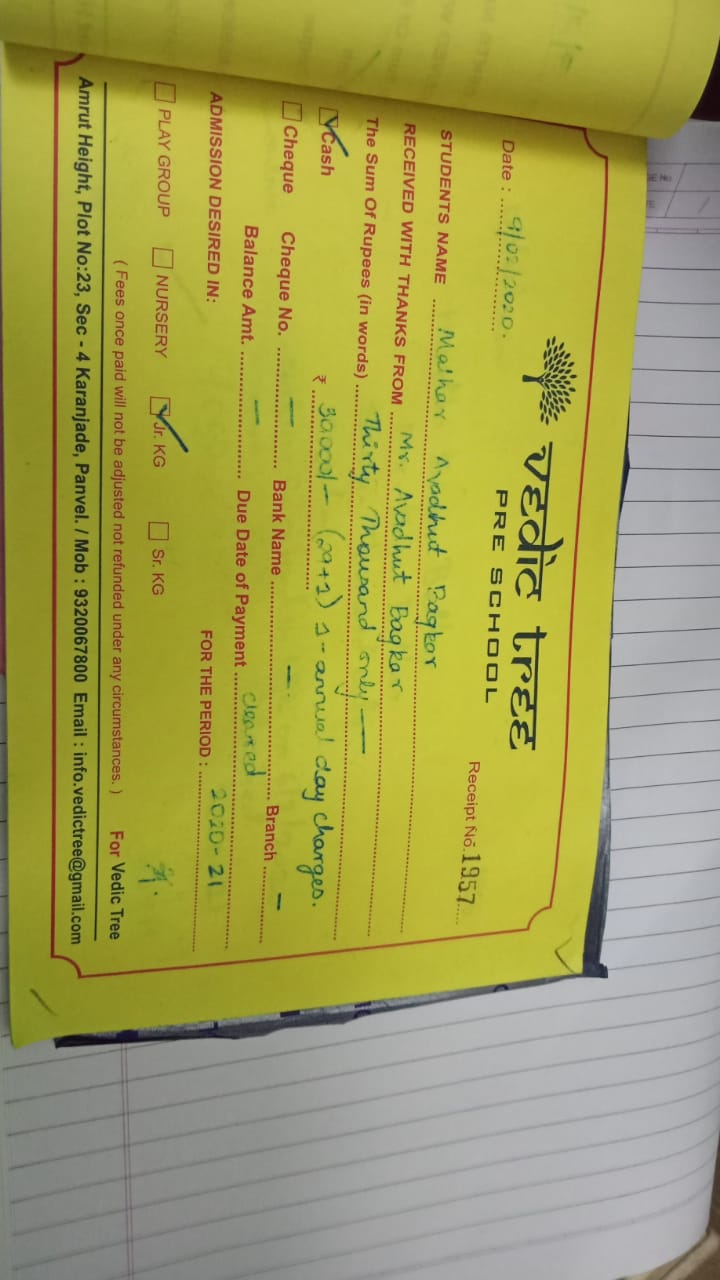 vedic tree
PRE SCHOOL
Date : 9/02/2020. Receipt No. 1957
STUDENTS NAME Malhar Avadhut Bagkar
RECEIVED WITH THANKS FROM Mr. Avadhut Bagkar
The Sum Of Rupees (in words) Thirty Thousand only —
Cash ₹ 30000/- (29+1) 1 - annual day charges.
Cheque Cheque No. — Bank Name — Branch —
Balance Amt. — Due Date of Payment cleared
ADMISSION DESIRED IN: FOR THE PERIOD : 2020-21
PLAY GROUP NURSERY Jr. KG Sr. KG
( Fees once paid will not be adjusted not refunded under any circumstances. ) For Vedic Tree
Amrut Height, Plot No:23, Sec - 4 Karanjade, Panvel. / Mob : 9320067800 Email : info.vedictree@gmail.com